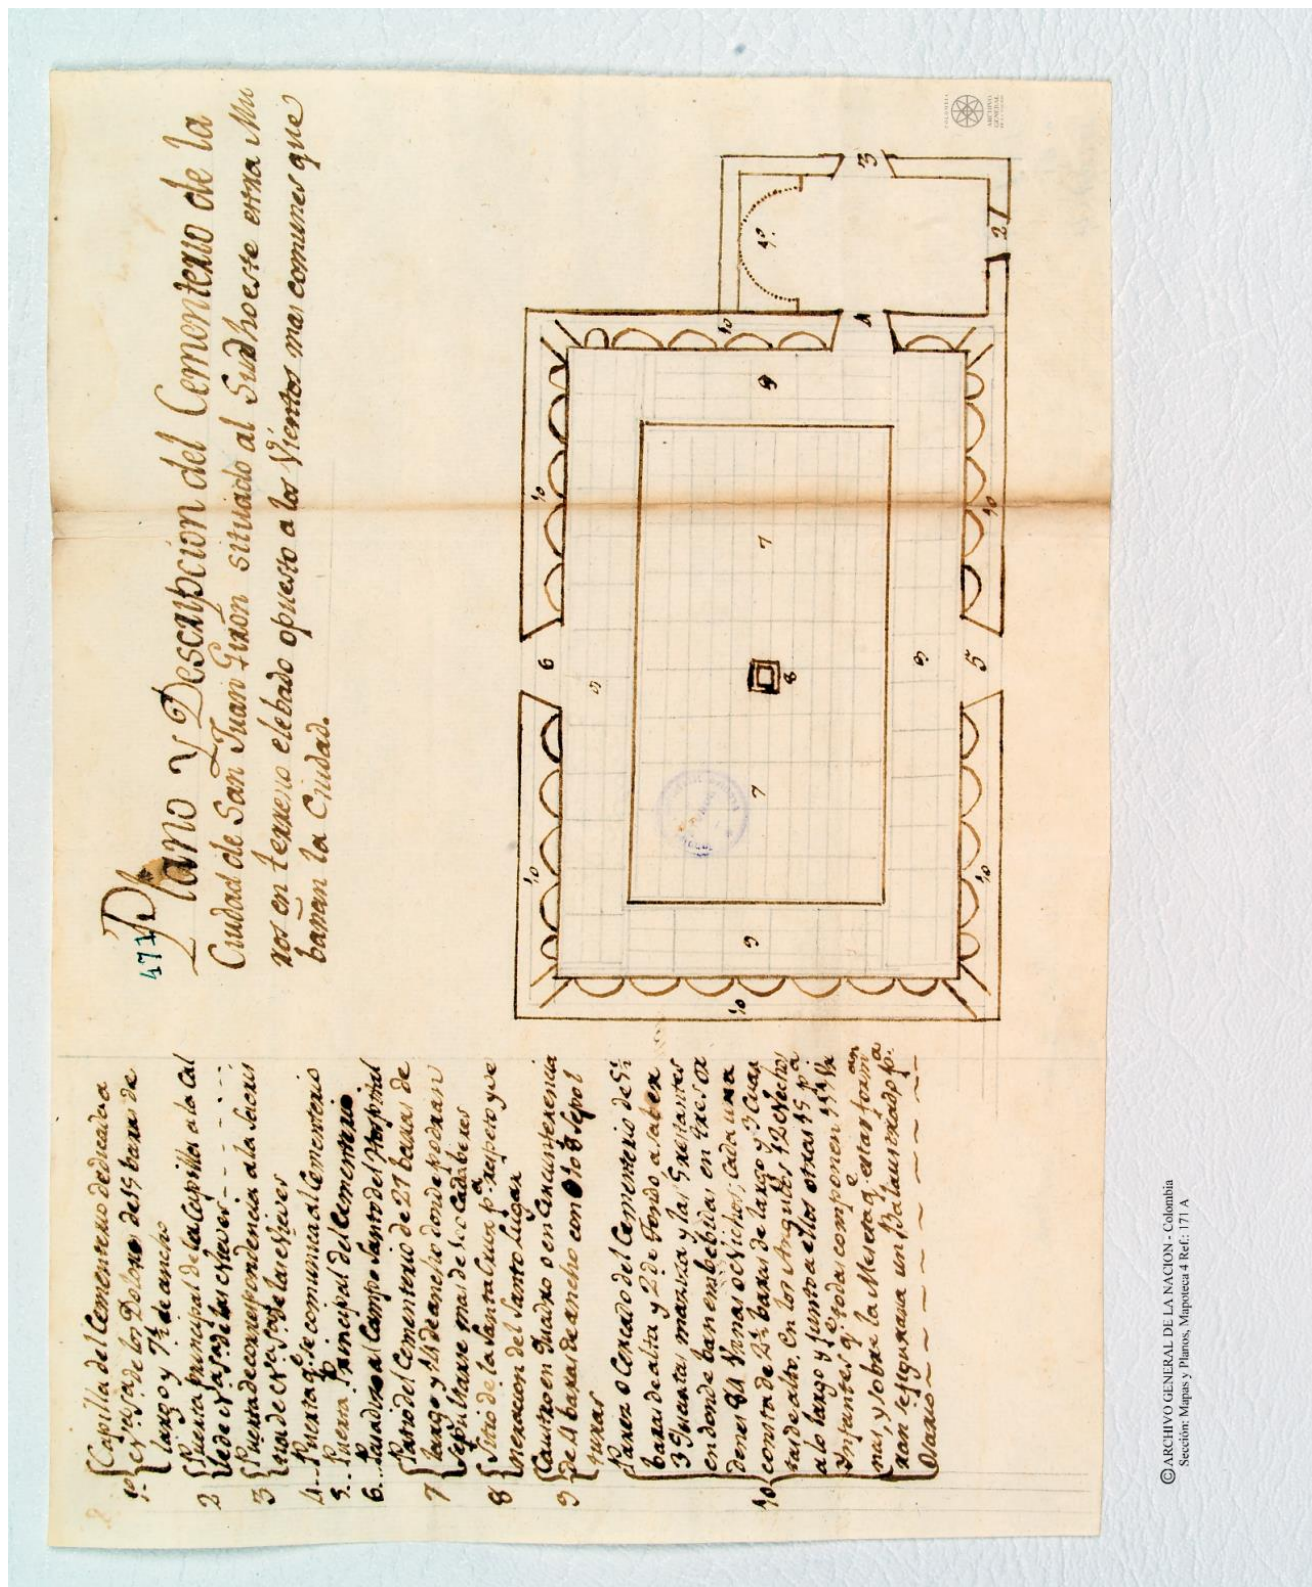 471
Plano y Descripcion del Cementerio de la
Ciudad de San Juan Giron situado al Sudhoeste extra Mu
ros en terreno elebado opuesto a los Vientos mas comunes que
bañan la Ciudad.
1ª Capilla del Cementerio dedicada a
Nª Sª de los Dolores de 15 baras de
largo y 7½ de ancho
2 Puerta principal de la Capilla a la Cal
le de Nª Sª de las Nieves
3 Puerta de correspondencia a la Sacris
tia de Nª Sª de las Nieves
4 Puerta qe. se comunica al Cementerio
5 Puerta Principal del Cementerio
6 al Campo Santo del Hospital
7 Patio del Cementerio de 27 baras de
largo y 14 de ancho donde podran
Sepultarse mas de 500 Cadaberes
8 Sitio de la Santa Cruz pa. respeto y ve
neracion del Santo Lugar
9 Claustro en Quadro o en Circunferencia
de 4 baras de ancho con Sepol
turas
10 Pared o Cercado del Cementerio de 5½
baras de alta y 2 de Fondo a saber
3 quartas maciza y las 5 restantes
en donde ban embebidas en tres or
denes 84 Urnas o Nichos, Cada una
consta de 2½ baras de largo y 3 Cuar
tas de alto. En los Angulos 12 Nichos
a lo largo y junto a ellos otras 15 pa.
Infantes qe. todas componen
nas, y sobre la Meseta qe. estas forman
ran se figurara un Balaustrado pa.
Osario
1ª
2
3
4
5
6
7
7
8
9
9
9
9
10
10
10
10
10
10
COLOMBIA
ARCHIVO
GENERAL
©ARCHIVO GENERAL DE LA NACION - Colombia
Sección: Mapas y Planos, Mapoteca 4 Ref.: 171 A